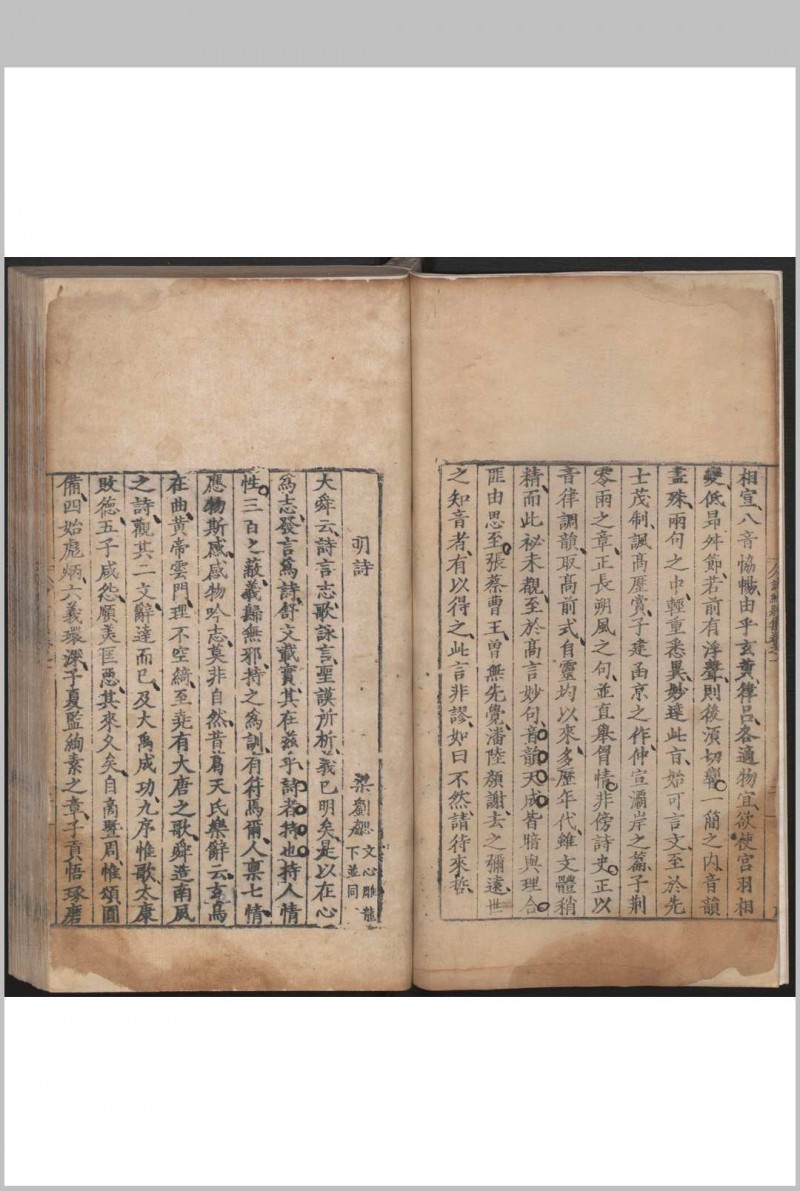 相宣八音協暢由乎玄黃律呂各適物宜欲使宮羽相
變低昂舛節若前有浮聲則後湏切響一簡之內音韻
盡殊兩句之中輕重悉異妙達此言始可言文至於先
士茂制諷髙歷賞子建函京之作仲宣灞岸之篇子荆
零雨之章正長朔風之句並直舉胷情非傍詩史正以
音律調韻取髙前式自靈均以來多歷年代雖文體稍
精而此祕未覩至於髙言妙句音韻天成皆暗與理合
匪由思至張蔡曹王曾無先覺潘陸顏謝去之彌遠世
之知音者有以得之此言非謬如曰不然請待來哲
明詩
梁劉勰 文心雕龍
下並同
大舜云詩言志歌詠言聖謨所析義已明矣是以在心
爲志發言爲詩舒文載實其在茲乎詩者持也持人情
性三百之蔽義歸無邪持之爲訓有符焉爾人禀七情
應物斯感感物吟志莫非自然昔葛天氏樂辭云玄鳥
在曲黃帝雲門理不空綺至堯有大唐之歌舜造南風
之詩觀其二文辭達而已及大禹成功九序惟歌太康
敗德五子咸怨順美匡惡其來久矣自商曁周惟頌圓
備四始彪炳六義環深子夏監絢素之章子貢悟琢磨